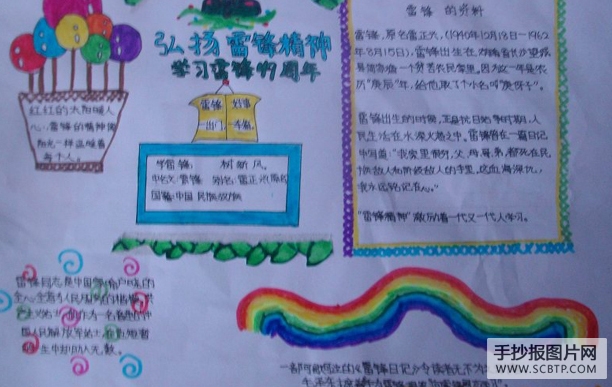 弘扬雷锋精神
学习雷锋49周年
红红的太阳暖人
心，雷锋的精神像
阳光一样温暖着
每个人。
雷锋 好事
一出门 一事做
学雷锋 树新风
中文名：雷锋 别名：雷正兴(原名
国籍：中国 民族：汉族
雷锋 的资料
雷锋，原名雷正兴，(1940年12月18日—1962
年8月15日)，雷锋出生在湖南省长沙望城
一个贫苦农民家里。因为这一年是农
历“庚辰”年，给他取了个小名叫“庚伢子”。
雷锋出生的时候，正是抗日战争时期，人
民生活在水深火热之中。雷锋曾在一篇日记
中写道：“我家里很穷，父、母、哥、弟，都死在民
族敌人和阶级敌人的手里，这血海深仇，
我永远铭记在心。”
“雷锋精神”激励着一代又一代人学习。
雷锋同志是中国
全心全意为人民服务的楷模，共
产主义战士
国人民解放军战士，在短暂
生中却助人无数。
《雷锋日记》令读者无不为
手抄报图片网
WWW.SCBTP.COM